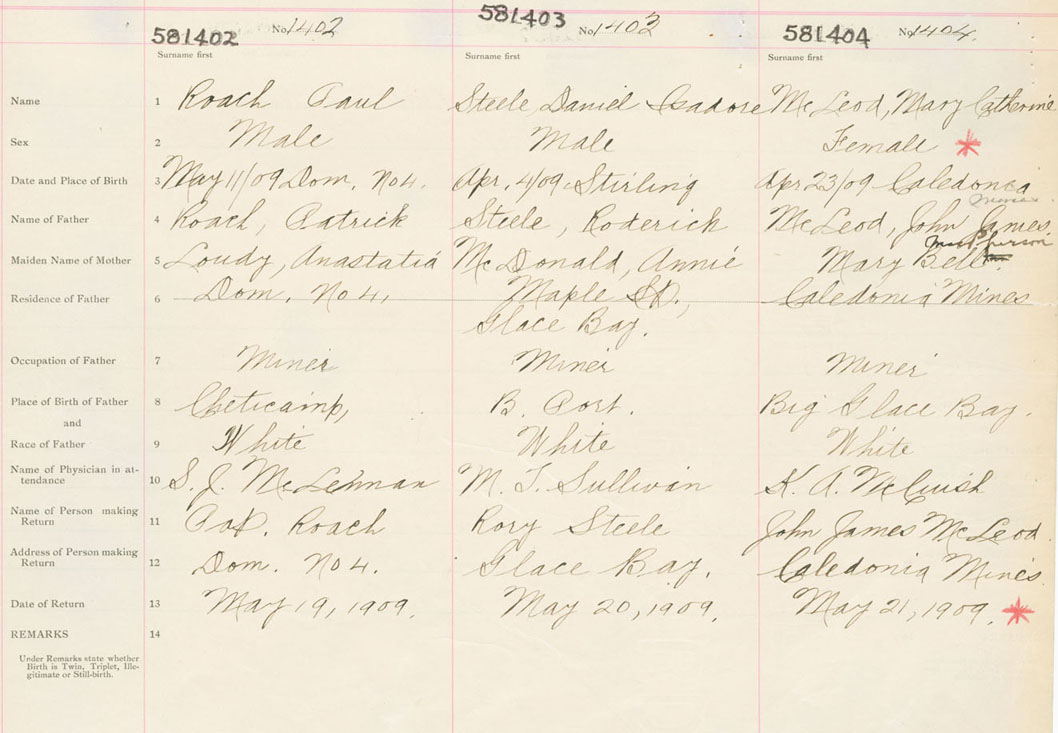 581402 No. 1402 581403 No. 1403 581404 No. 1404.
Surname first Surname first Surname first
Name 1 Roach Paul Steele, Daniel Isadore McLeod, Mary Catherine
Sex 2 Male Male Female
Date and Place of Birth 3 May 11/09 Dom. No 4. Apr. 4/09. Stirling Apr 23/09 Caledonia
Mines
Name of Father 4 Roach, Patrick Steele, Roderick McLeod, John James.
Maiden Name of Mother 5 Loudy, Anastatia McDonald, Annie Mary Bell
Residence of Father 6 Dom. No 4, Maple St., Caledonia Mines
Glace Bay.
Occupation of Father 7 Miner Miner Miner
Place of Birth of Father 8 Cheticamp, B. Port. Big Glace Bay.
and
Race of Father 9 White White White
Name of Physician in at-
tendance 10 S. J. McLennan M. T. Sullivan K. A. McCuish
Name of Person making
Return 11 Pat. Roach Rory Steele John James McLeod
Address of Person making
Return 12 Dom. No 4. Glace Bay. Caledonia Mines
Date of Return 13 May 19, 1909. May 20, 1909. May 21, 1909.
REMARKS 14
Under Remarks state whether
Birth is Twin, Triplet, Ille-
gitimate or Still-birth.